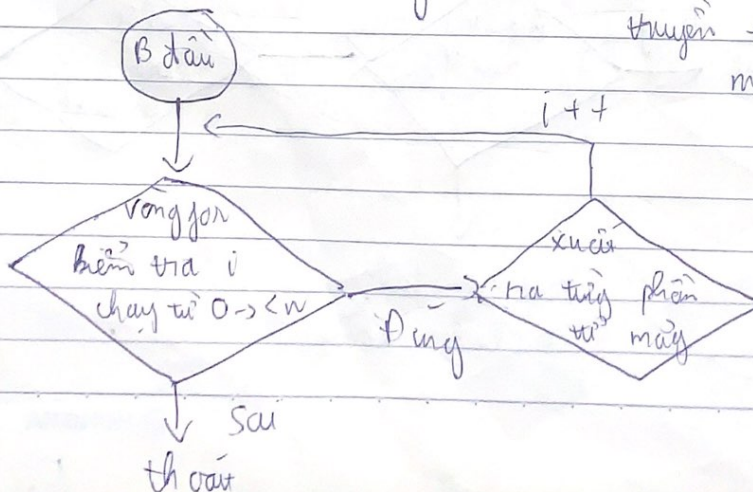 truyền
B đầu
m
i++
vòng for
kiểm tra i
chạy từ 0 -> < n
xuất
ra từng phần
tử mảg
Đúng
Sai
thoát